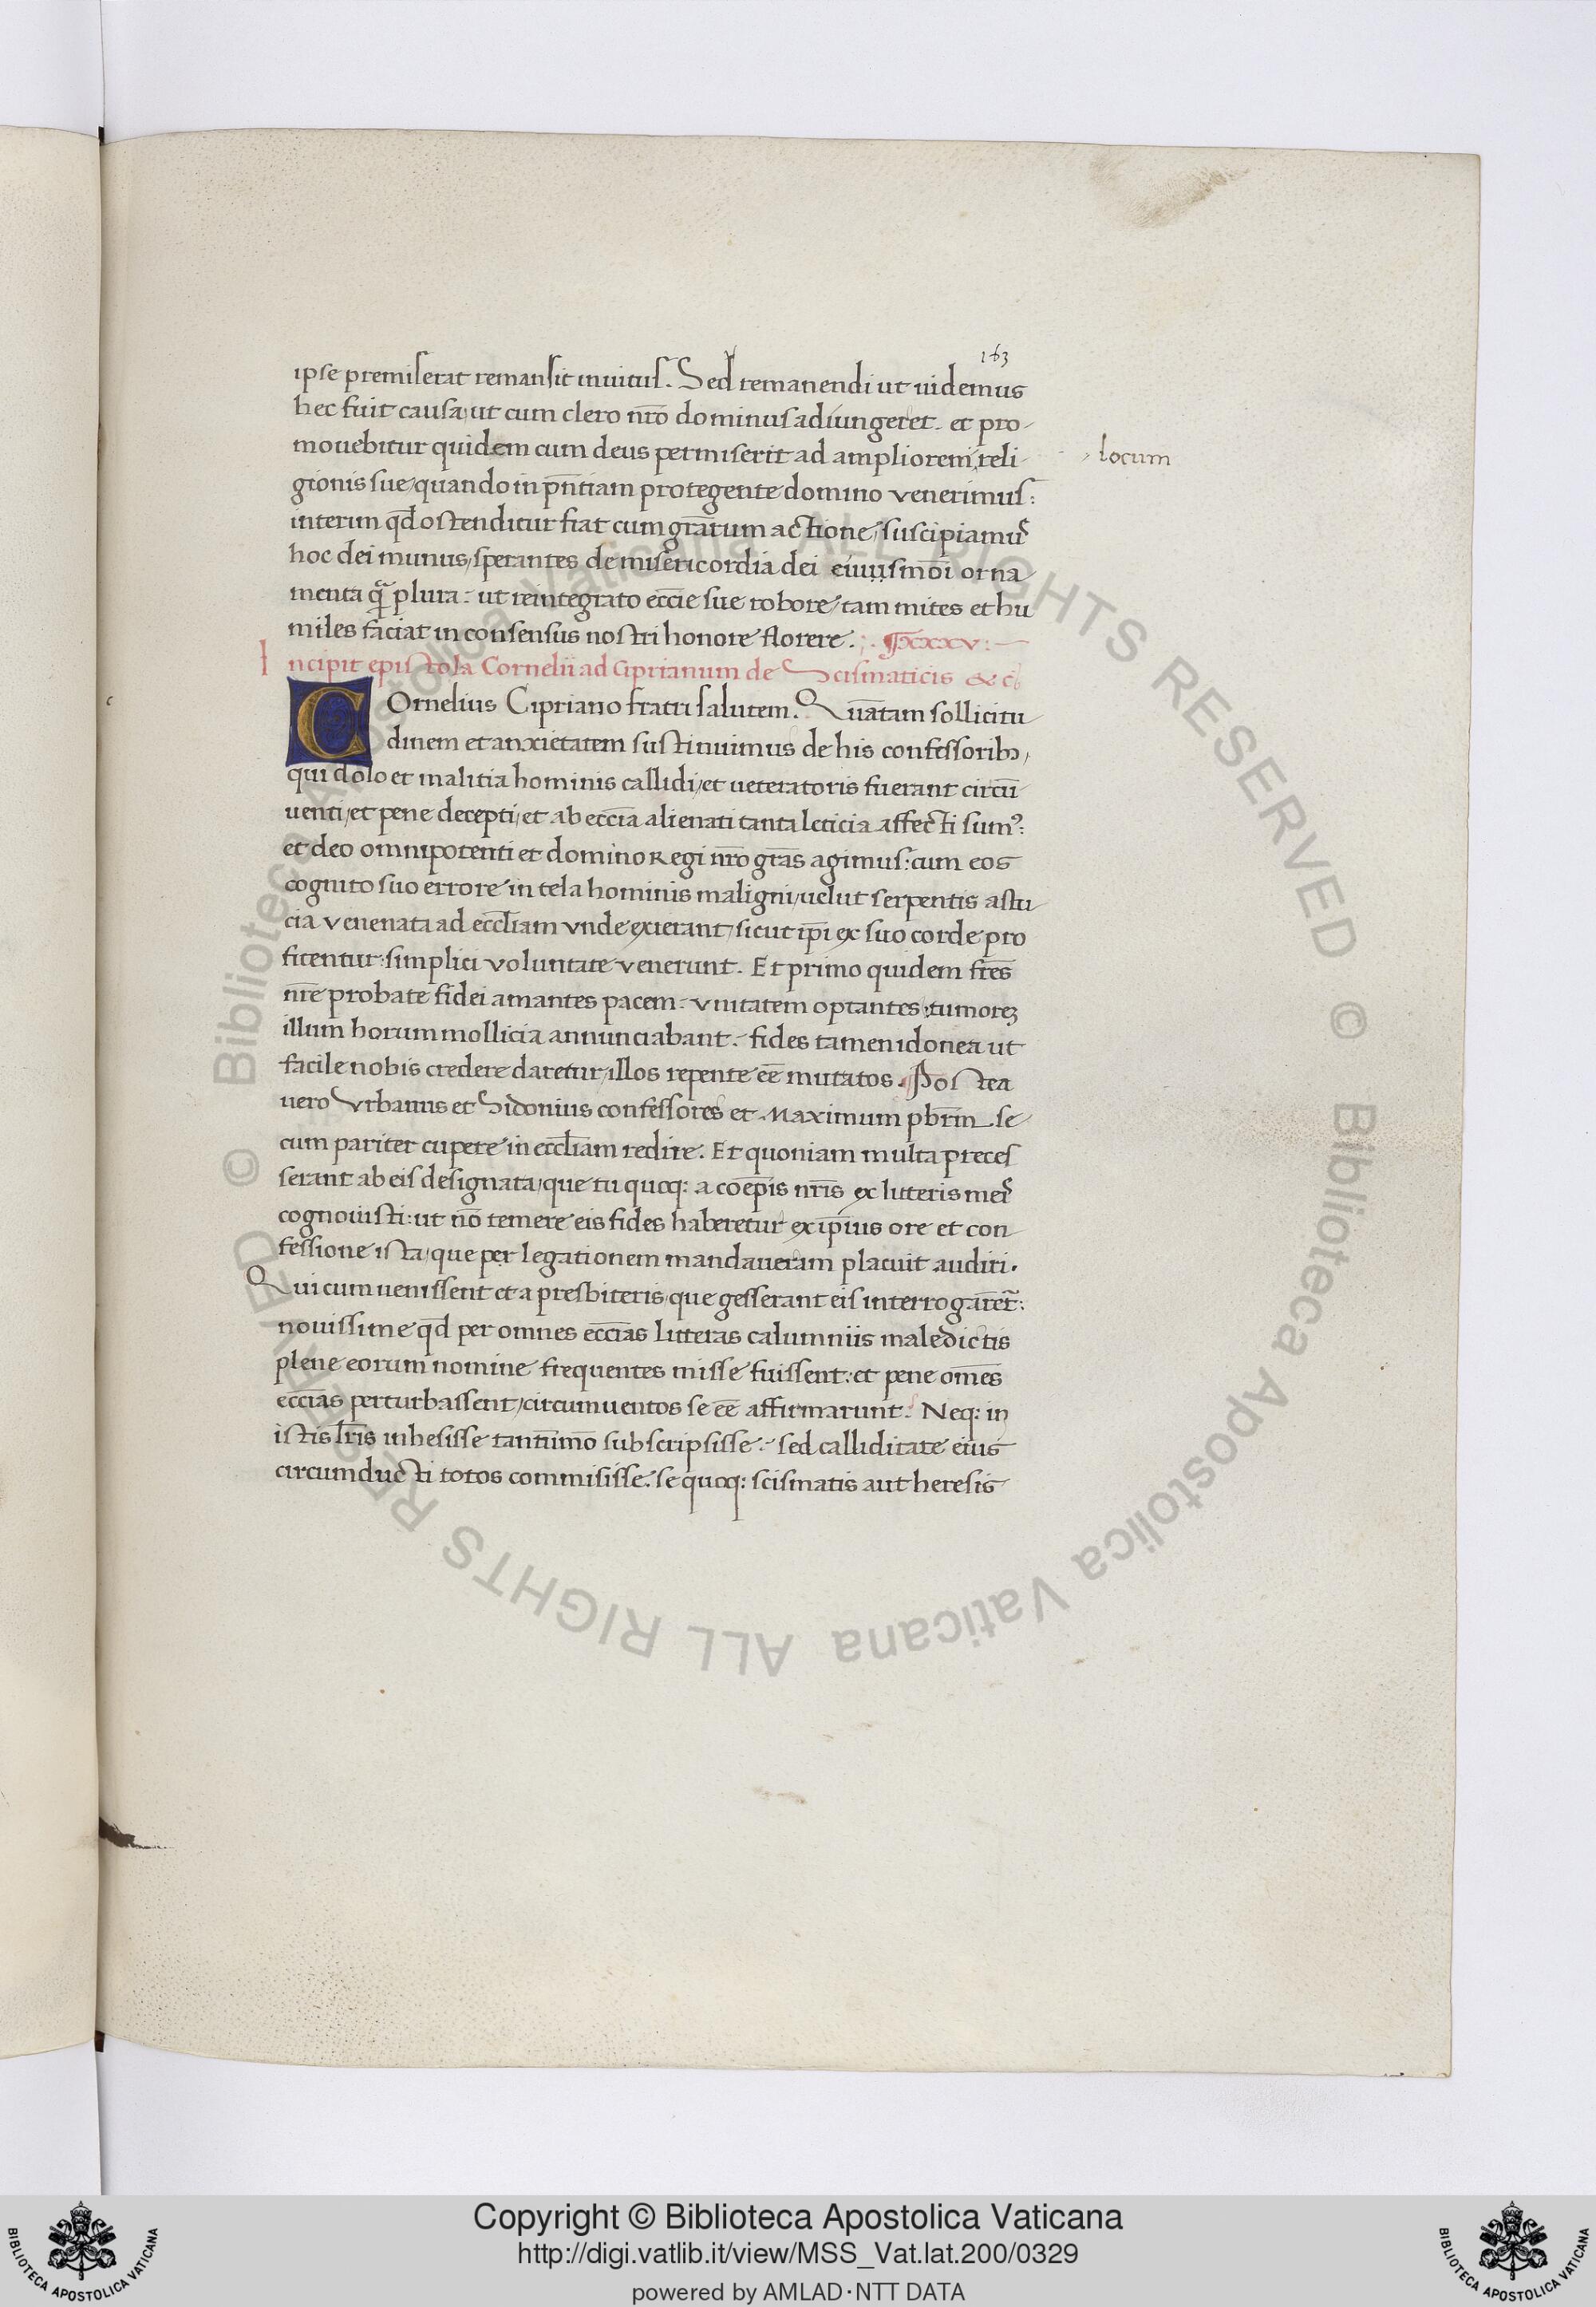 163
ipse premiserat remansit inuitus. Sed remanendi ut uidemus
hec fuit causa, ut cum clero nr̄o dominus adiungeret. et pro-
mouebitur quidem cum deus permiserit ad ampliorem, reli-
, locum
gionis sue, quando in pn̄tiam protegente domino venerimus:
interim qd̄ ostenditur fiat cum gr̄arum actione, suscipiamus
hoc dei munus, sperantes de misericordia dei eiuusmōi orna-
menta plura: ut reintegrato ecc̄ie sue robore, tam mites et hu
miles faciat in consensus nostri honore florere. LXXXV:
Incipit epistola Cornelii ad Ciprianum de Scismaticis
COrnelius Cipriano fratri salutem. Quātam sollicitu
dinem et anxietatem sustinuimus de his confessorib;
qui dolo et malitia hominis callidi, et ueteratoris fuerant circū
uenti, et pene decepti, et ab ecc̄ia alienati tanta leticia affecti sumꝰ:
et deo omnipotenti et domino Regi nr̄o gr̄as agimus: cum eos
cognito suo errore in tela hominis maligni, uelut serpentis astu
cia venenata ad eccl̄iam vnde exierant, sicut ip̄i ex suo corde pro
fitentur: simplici voluntate venerunt. Et primo quidem fr̄es
nr̄e probate fidei amantes pacem: vnitatem optantes, tumorez
illum horum mollicia annunciabant: fides tamen idonea ut
facile nobis credere daretur, illos repente eē mutatos. Postea
uero Vrbanus et Sidonius confessores et Maximum pb̄rm se
cum pariter cupere in eccl̄iam redire. Et quoniam multa preces
serant ab eis designata, que tu quoq: a coep̄is nr̄is ex litteris meis
cognouisti: ut nō temere eis fides haberetur ex ip̄ius ore et con
fessione ista, que per legationem mandauerant placuit audiri.
Qui cum uenissent et a presbiteris, que gesserant eis interrogarēt̄:
nouissime qd̄ per omnes ecc̄ias litteras calumniis maledictis
plene eorum nomine frequentes misse fuissent: et pene om̄es
ecc̄ias perturbassent, circumuentos se eē affirmarunt. Neq: in
istis lr̄is inhesisse tantūmō subscripsisse: sed calliditate eius
circumducti totos commisisse. se quoq: scismatis aut heresis
© Biblioteca Apostolica Vaticana ALL RIGHTS RESERVED © Biblioteca Apostolica Vaticana ALL RIGHTS RESERVED
Copyright © Biblioteca Apostolica Vaticana
http://digi.vatlib.it/view/MSS_Vat.lat.200/0329
powered by AMLAD·NTT DATA
BIBLIOTECA APOSTOLICA VATICANA
BIBLIOTECA APOSTOLICA VATICANA